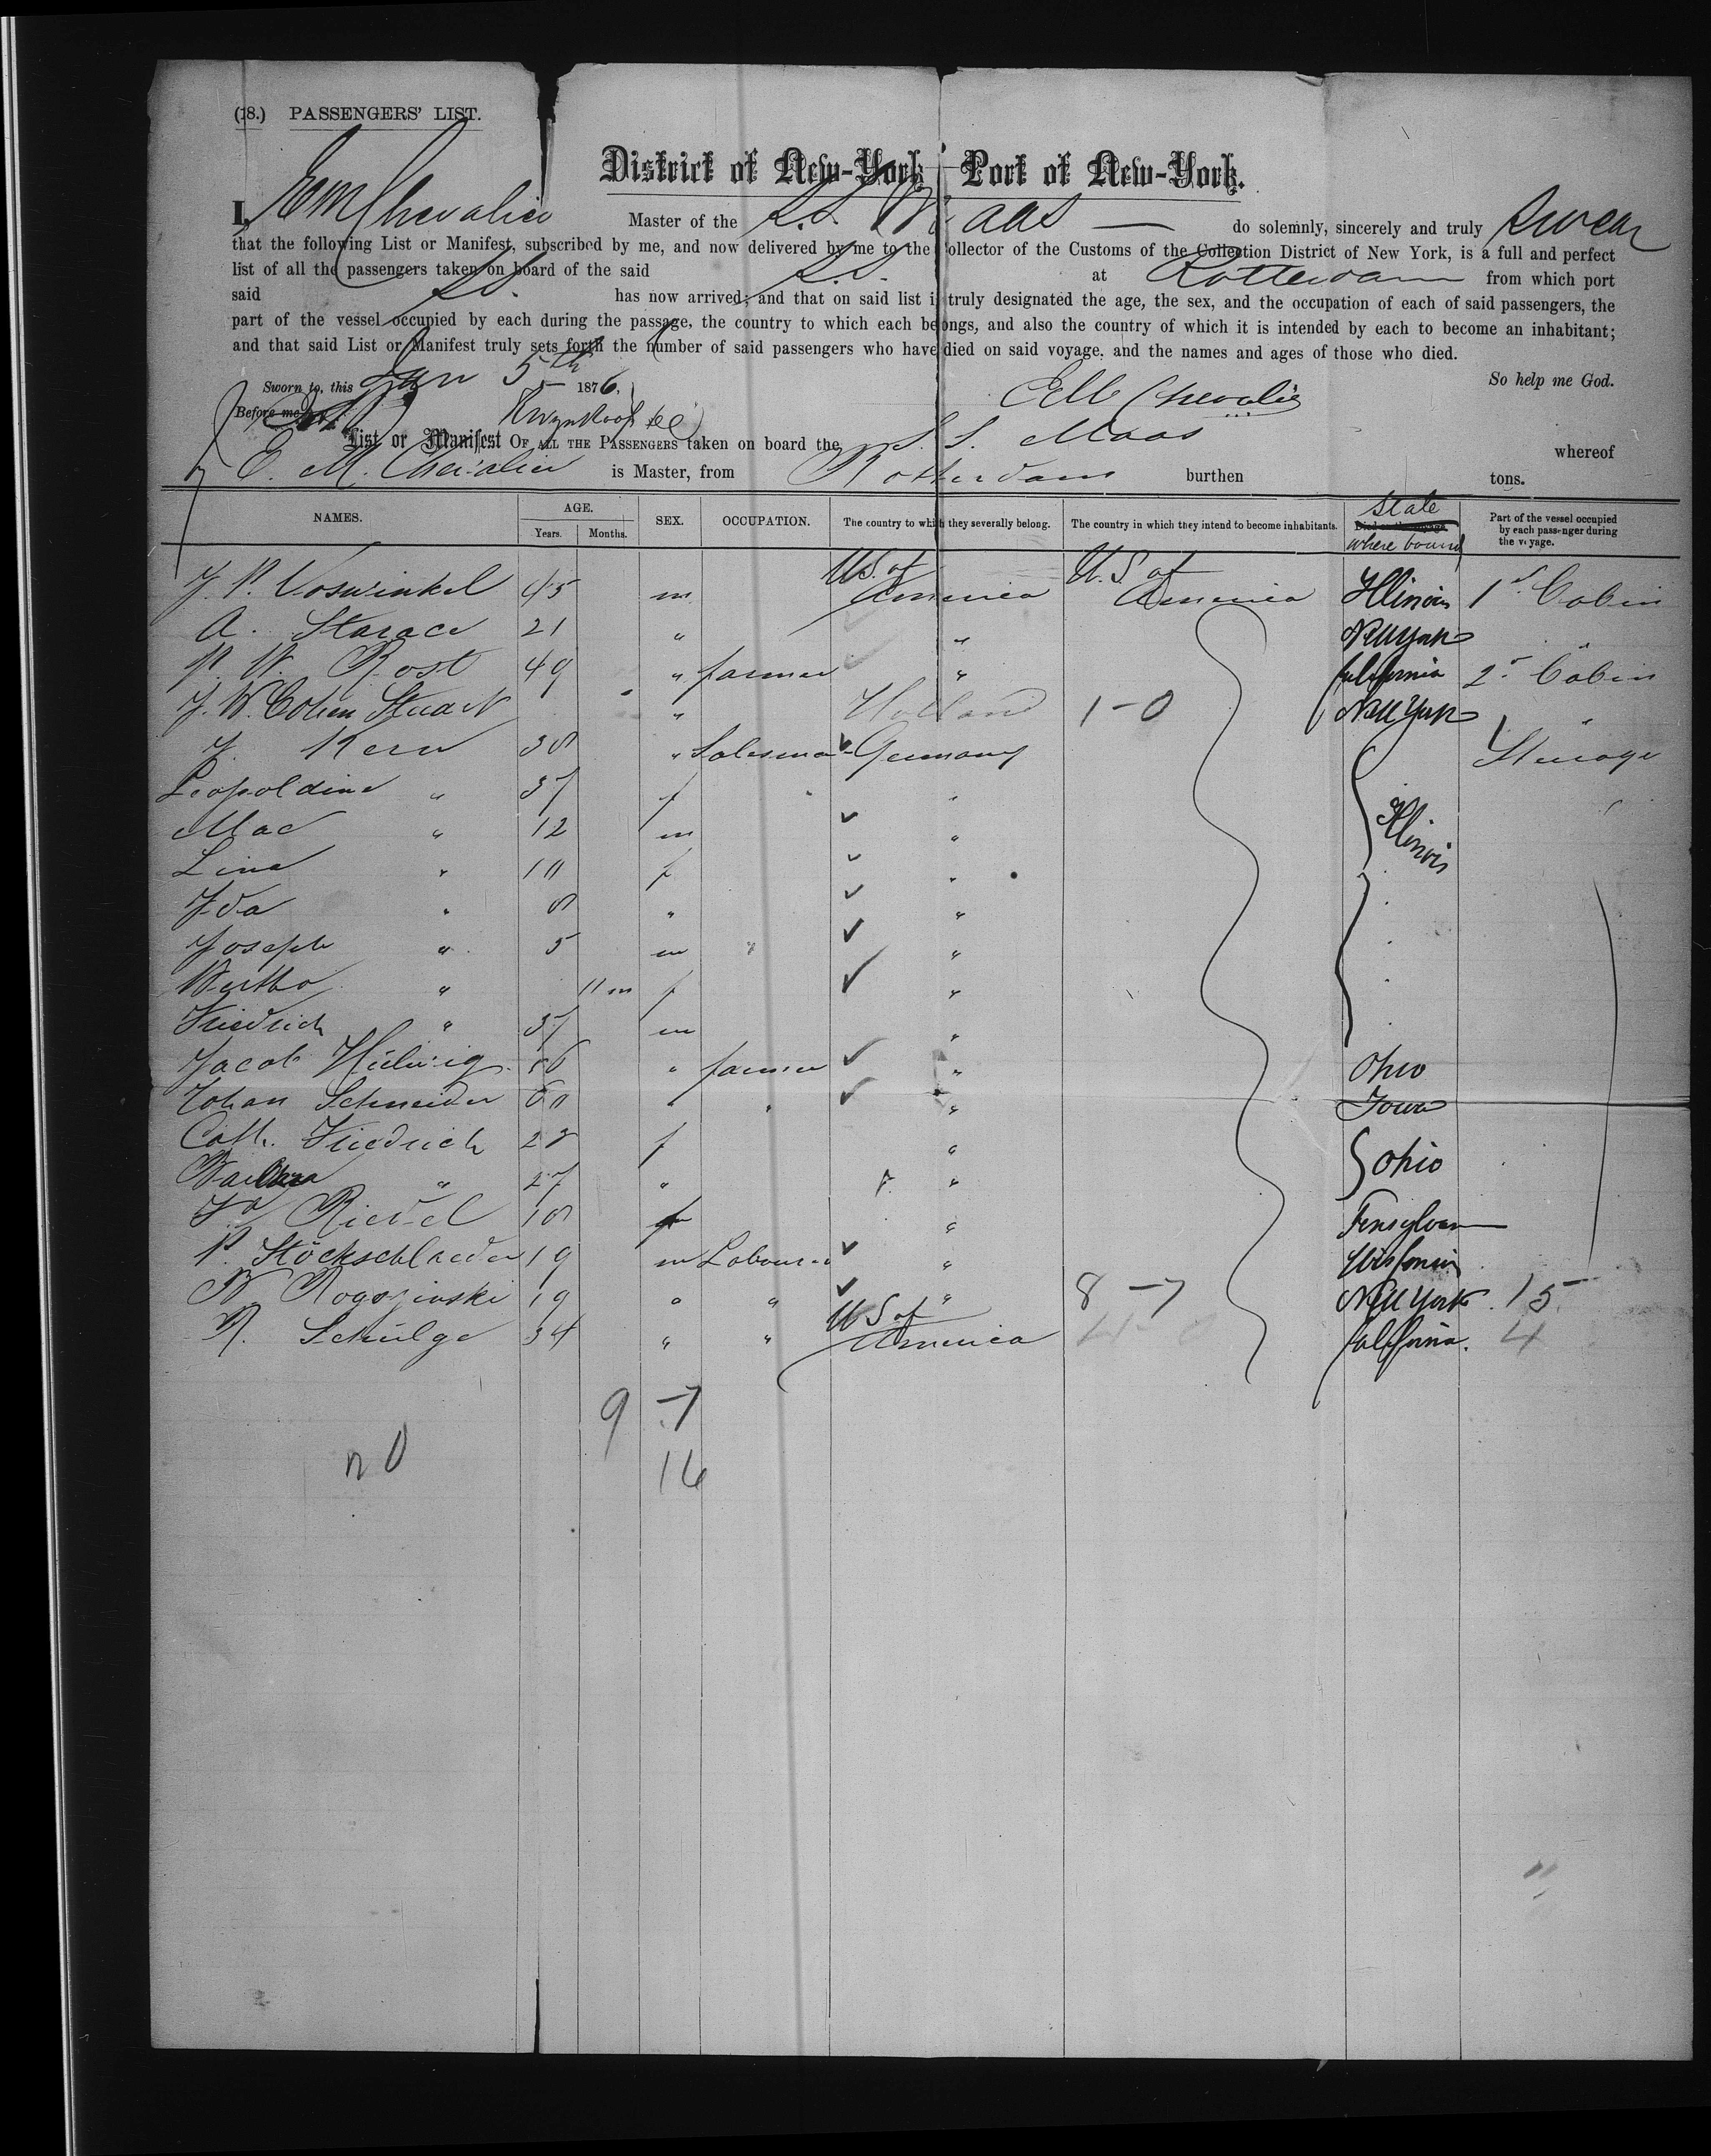 (18.) PASSENGERS' LIST.
District of New-York Port of New-York.
I, E M Chevalier Master of the S.S. Maas — do solemnly, sincerely and truly swear
that the following List or Manifest, subscribed by me, and now delivered by me to the Collector of the Customs of the Collection District of New York, is a full and perfect
list of all the passengers taken on board of the said S.S. at Rotterdam from which port
said S.S. has now arrived; and that on said list is truly designated the age, the sex, and the occupation of each of said passengers, the
part of the vessel occupied by each during the passage, the country to which each belongs, and also the country of which it is intended by each to become an inhabitant;
and that said List or Manifest truly sets forth the number of said passengers who have died on said voyage, and the names and ages of those who died.
So help me God.
Sworn to, this Jan 5th 1876,
Before me
E M Chevalier
List or Manifest OF ALL THE PASSENGERS taken on board the S. S. Maas whereof
E. M. Chevalier is Master, from Rotterdam burthen tons.
NAMES. AGE. Years. Months. SEX. OCCUPATION. The country to which they severally belong. The country in which they intend to become inhabitants. State where bound Part of the vessel occupied by each passenger during the voyage.
J. P. Voswinkel 45 m U.S. of America U.S of America Illinois 1st Cabin
A. Starace 21 " " New York "
P. W. Rost 49 " farmer " California 2d Cabin
J. W. Cohen Stuart " Holland 1-0 New York "
J. Kern 38 " Salesman Germany Steerage
Leopoldine " 37 f "
Mac " 12 m " Illinois
Lina " 10 f "
Ida " 8 " "
Joseph " 5 m "
Bertha " 11 m f "
Friedrich " 37 m "
Jacob Hüllwig 56 " farmer " Ohio
Johan Schneider 60 " " " Iowa
Cath. Friedrich 28 f " Ohio
Barbara " 27 " "
Riedel 18 " Pensylvan
P. Stöckschlaeder 19 m Labourer " Wisconsin
B. Rogozinski 19 " " " 8-7 New York 15
R. Schulge 34 " " U S of America 4-0 California. 4
9-7
n 0
16